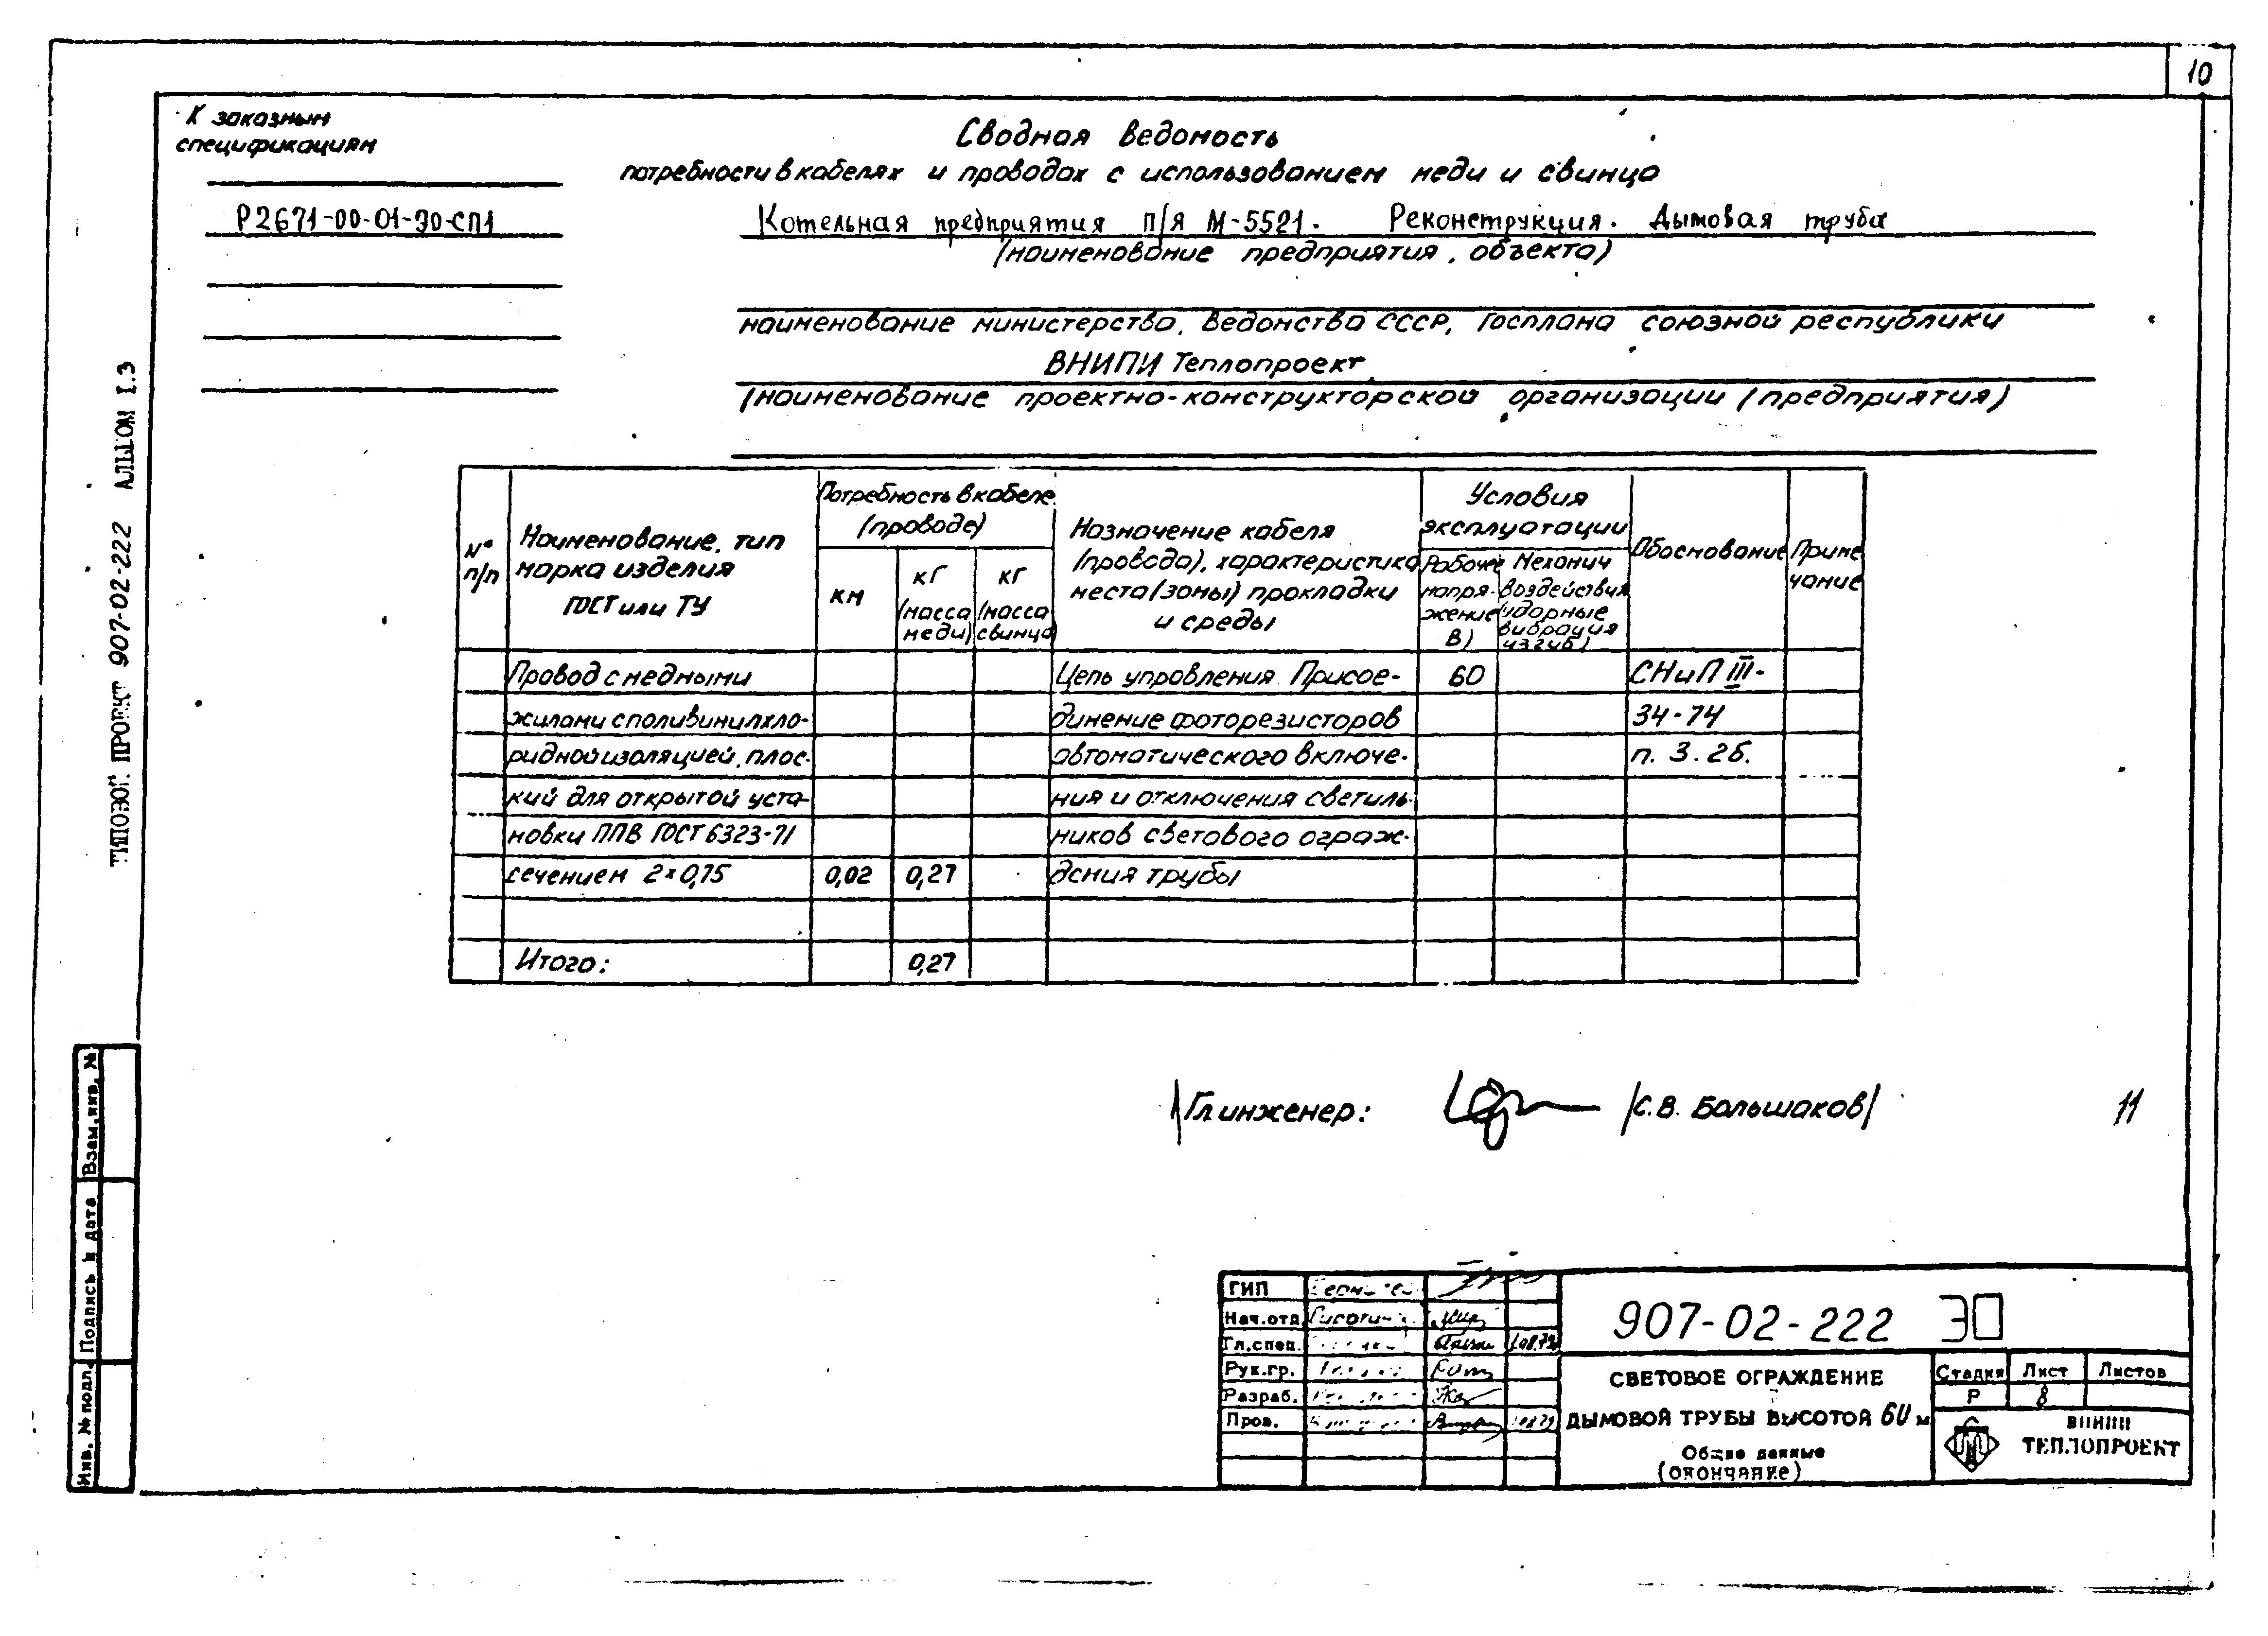 10
К заказным
спецификациям
Р2671-00-01-ЭО-СП1
Сводная ведомость
потребности в кабелях и проводах с использованием меди и свинца
Котельная предприятия п/я М-5521. Реконструкция. Дымовая труба
(наименование предприятия, объекта)
наименование министерства, ведомства СССР, Госплана союзной республики
ВНИПИ Теплопроект
(наименование проектно-конструкторской организации (предприятия)
ТИПОВОЙ ПРОЕКТ 907-02-222 АЛЬБОМ I.3
№ п/п
Наименование, тип
марка изделия
ГОСТ или ТУ
Потребность в кабеле
(проводе)
км
кг
(масса
меди)
кг
(масса
свинца
Назначение кабеля
(провода), характеристика
места (зоны) прокладки
и среды
Условия
эксплуатации
Рабочее
напря-
жение
В)
Механич
воздействия
(ударные
вибрация
изгиб)
Обоснование
Приме
чание
Провод с медными Цепь управления. Присое- 60 СНиП III-
жилами с поливинилхло- динение фоторезисторов 34-74
ридной изоляцией, плос- автоматического включе- п. 3.26.
кий для открытой уста- ния и отключения светиль-
новки ППВ ГОСТ 6323-71 ников светового ограж-
сечением 2×0,75 0,02 0,27 дения трубы
Итого: 0,27
Гл инженер: /С.В. Большаков/
11
Взам.инв. №
Подпись и дата
Инв. № подл.
ГИП
Нач.отд
Гл.спец.
Рук.гр.
Разраб.
Пров.
907-02-222 ЭО
СВЕТОВОЕ ОГРАЖДЕНИЕ
ДЫМОВОЙ ТРУБЫ ВЫСОТОЙ 60 м
Общие данные
(окончание)
Стадия Лист Листов
Р 8
ВНИПИ
ТЕПЛОПРОЕКТ